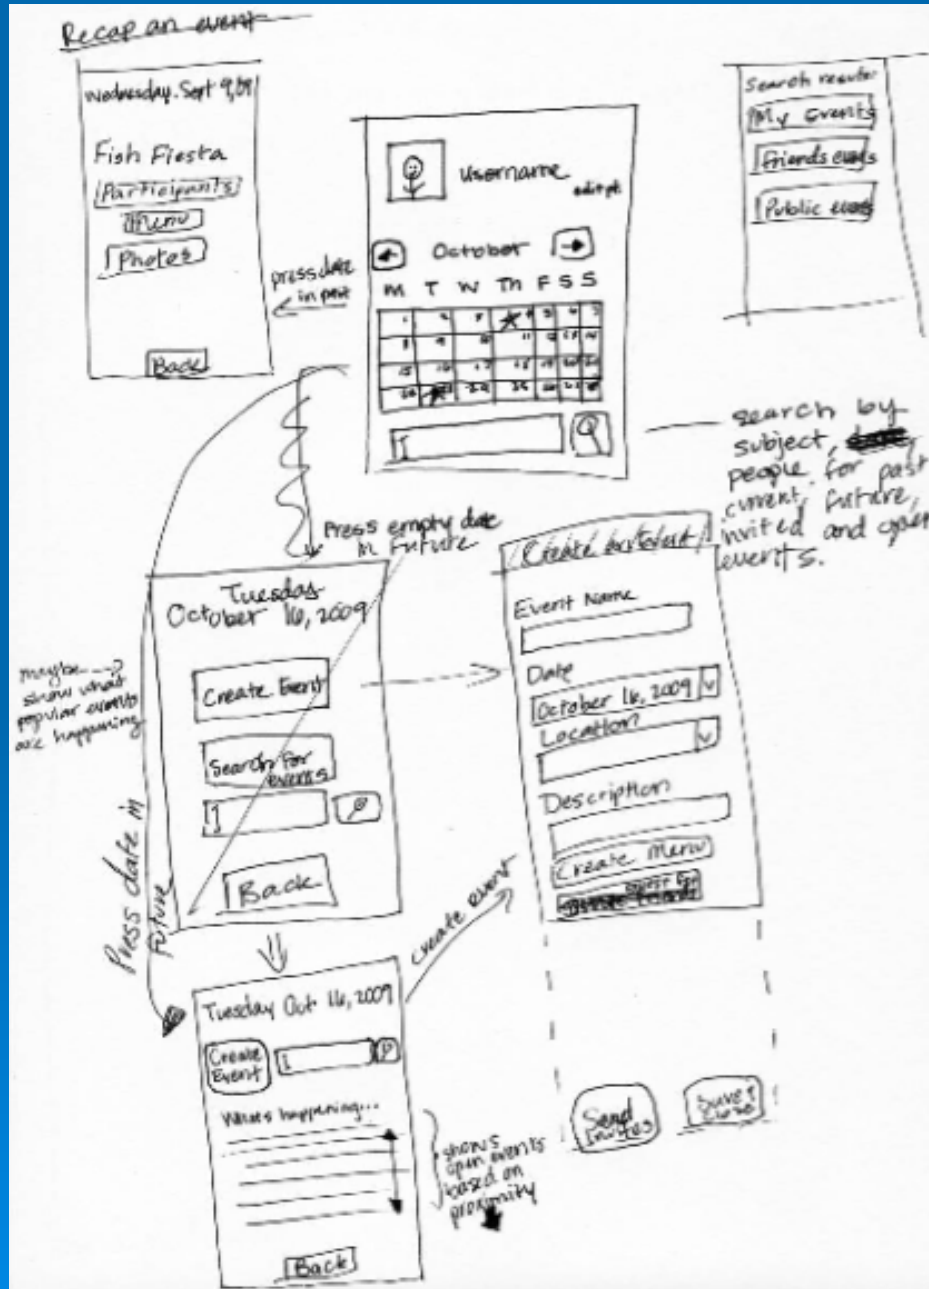 Recap an event
Wednesday. Sept 9, 09
Fish Fiesta
Participants
Menu
Photos
Back
press date
in past
username
edit pt.
October
M T W Th F S S
Search results
My Events
Friends events
Public events
search by
subject,
people for past
current, future,
invited and open
events.
Press empty date
in future
Tuesday
October 16, 2009
Create Event
Search for
events
Back
maybe
show what
popular events
are happening
Press date in
future
Create an Event
Event Name
Date
October 16, 2009
Location
Description
Create Menu
create event
Tuesday Oct 16, 2009
Create
Event
Whats happening...
shows
open events
based on
proximity
Back
Send
Invites
Save &
Close